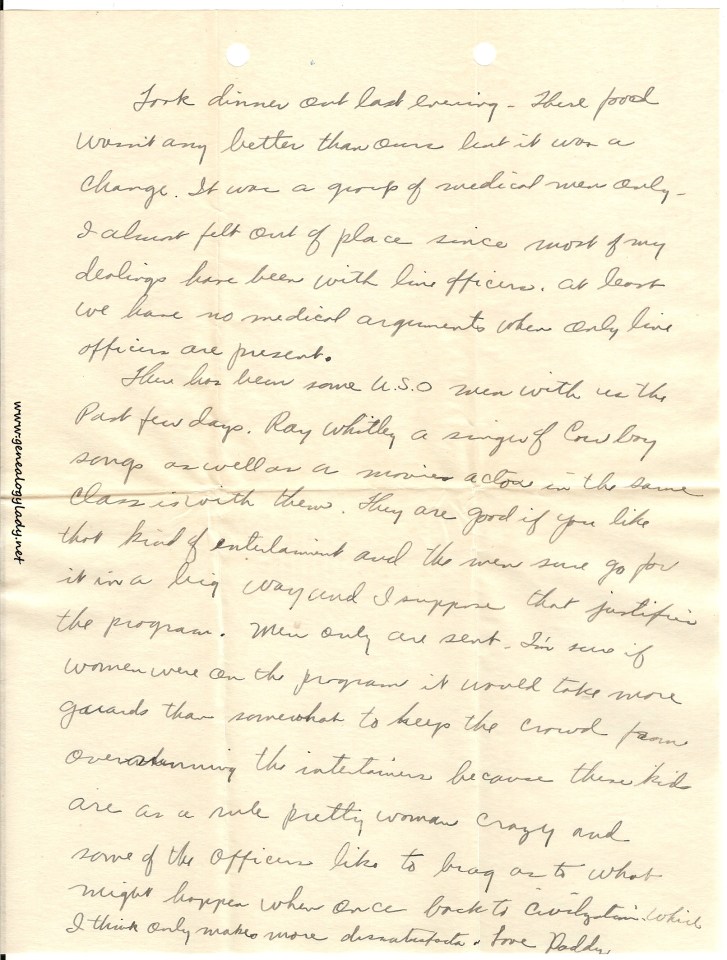 Took dinner out last evening - There food
wasn't any better than ours but it was a
change. It was a group of medical men only -
I almost felt out of place since most of my
dealings have been with line officers. At least
we have no medical arguments when only line
officers are present.
There has been some U.S.O men with us the
Past few days. Ray Whitley a singer of Cow boy
songs as well as a movie actor in the same
class is with them. They are good if you like
that kind of entertaiment and the men sure go for
it in a big way and I suppose that justifies
the program. Men only are sent - I'm sure if
women were on the program it would take more
guards than somewhat to keep the crowd from
overrunning the intertainers because these kids
are as a rule pretty woman crazy and
some of the officers like to brag as to what
might happen when once back to civilization which
I think only makes more . Love Daddy
www.genealogylady.net